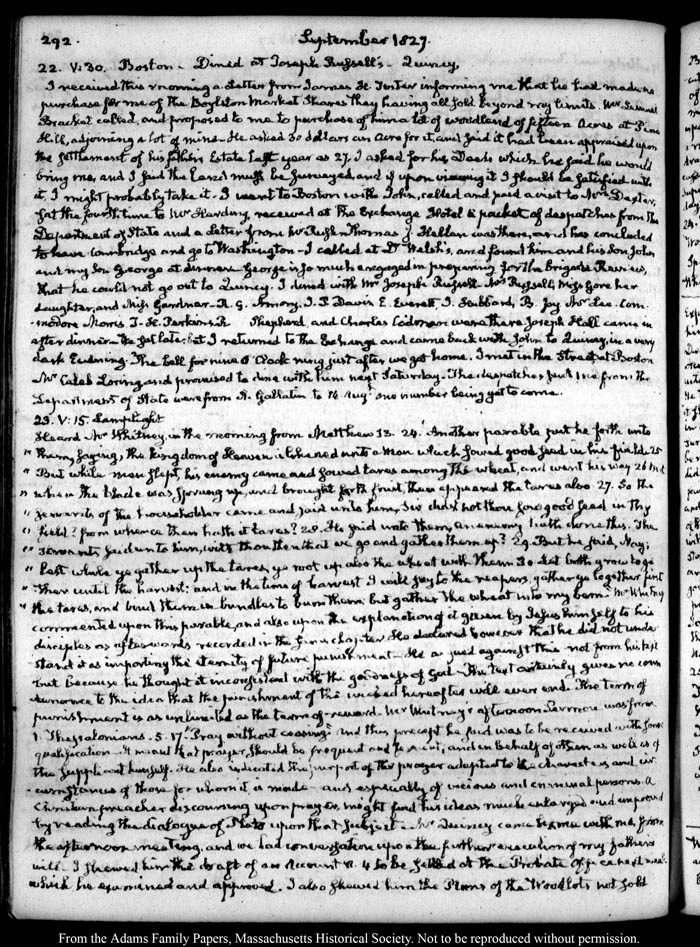 292.
September 1827.
22. V:30. Boston - Dined at Joseph Russell's - Quincy,
I received this morning a Letter from James H. Foster informing me that he had made no
purchase for me of the Boylston Market Shares they having all sold beyond my limits. Mr Samuel
Bracket called, and proposed to me to purchase of him a lot of woodland of fifteen Acres at Pine
Hill, adjoining a lot of mine - He asked 30 dollars an Acre for it, and said it had been appraised upon
the settlement of his father's Estate last year as 27. I asked for his Deeds which he said he would
bring me, and I said the Land must be surveyed, and if upon viewing it I should be satisfied with
it, I might probably take it. I went to Boston with John, called and paid a visit to Mrs Dexter,
sat the fourth time to Mr Harding, received at the Exchange Hotel a packet of despatches from the
Department of State and a Letter from Mr Rush - Thomas J. Hellen was there, and has concluded
to leave Cambridge and go to Washington - I called at Dr Welsh's, and found him and his Son John
and my Son George at dinner. George is so much engaged in preparing for the Brigade Review,
that he could not go out to Quincy. I dined with Mr Joseph Russell. Mrs Russell, Miss Gore her
daughter, and Miss Gardner - R. G. Amory, I. P. Davis E. Everett, J. Hubbard, B. Joy Mr Lee. Com-
modore Morris T. H. Perkins Shepherd, and Charles Codman were there Joseph Hall came in
after dinner. We sat late; but I returned to the Exchange and came back with John to Quincy, in a very
dark Evening. The bell for nine O'Clock rung just after we got home. I met in the Street at Boston
Mr Caleb Loring and promised to dine with him next Saturday. The despatches sent me from the
Department of State were from A. Gallatin to 14 Aug: one number being yet to come.
23. V:15. Lamp light
Heard Mr Whitney in the morning from Matthew 13. 24. Another parable put he forth unto
" them, saying, the kingdom of Heaven is likened unto a man which sowed good seed in his field. 25
" But while men slept, his enemy came and sowed tares among the wheat, and went his way 26 But
" when the blade was sprung up, and brought forth fruit, then appeared the tares also. 27. So the
" servants of the householder came and said unto him, Sir didst not thou sow good seed in thy
" field? from whence then hath it tares? 28. He said unto them, an enemy hath done this. The
" servants said unto him, wilt thou then that we go and gather them up? 29. But he said, Nay;
" lest while ye gather up the tares, ye root up also the wheat with them 30 Let both grow toge-
" ther until the harvest: and in the time of harvest I will say to the reapers, gather ye together first
" the tares, and bind them in bundles to burn them: but gather the wheat into my barn. Mr Whitney
commented upon this parable, and also upon the explanation of it given by Jesus himself to his
disciples as afterwards recorded in the same chapter. He declared however that he did not under-
stand it as importing the eternity of future punishment - He argued against this not from his text
but because he thought it inconsistent with the goodness of God. The text certainly gives no coun-
tenance to the idea that the punishment of the wicked hereafter will ever end. The term of
punishment is as unlimited as the term of reward. Mr Whitney's afternoon Sermon was from
1. Thessalonians. 5. 17. Pray without ceasing. And this precept he said was to be received with some
qualification. It meant that prayer should be frequent and fervent, and in behalf of others as well as of
the suppliant himself. He also indicated the purport of this prayer adapted to the characters and cir-
cumstances of those for whom it is made - and especially of vicious and criminal persons. A
Christian preacher discoursing upon prayer, might find his ideas much enlarged and improved
by reading the dialogue of Plato upon that subject. Mr Quincy came home with me, from
the afternoon meeting, and we had conversation upon the further execution of my father's
will. I shewed him the draft of an Account N. 4 to be settled at the Probate Office next week
which he examined and approved. I also shewed him the Plans of the Woodlots not sold
From the Adams Family Papers, Massachusetts Historical Society. Not to be reproduced without permission.